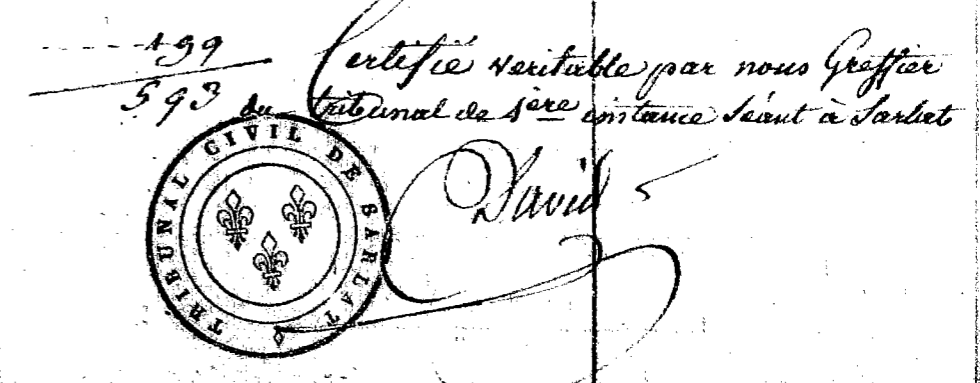 199
593
Certifié veritable par nous Greffier
du tribunal de 1ère instance séant à Sarlat
David
TRIBUNAL CIVIL DE SARLAT